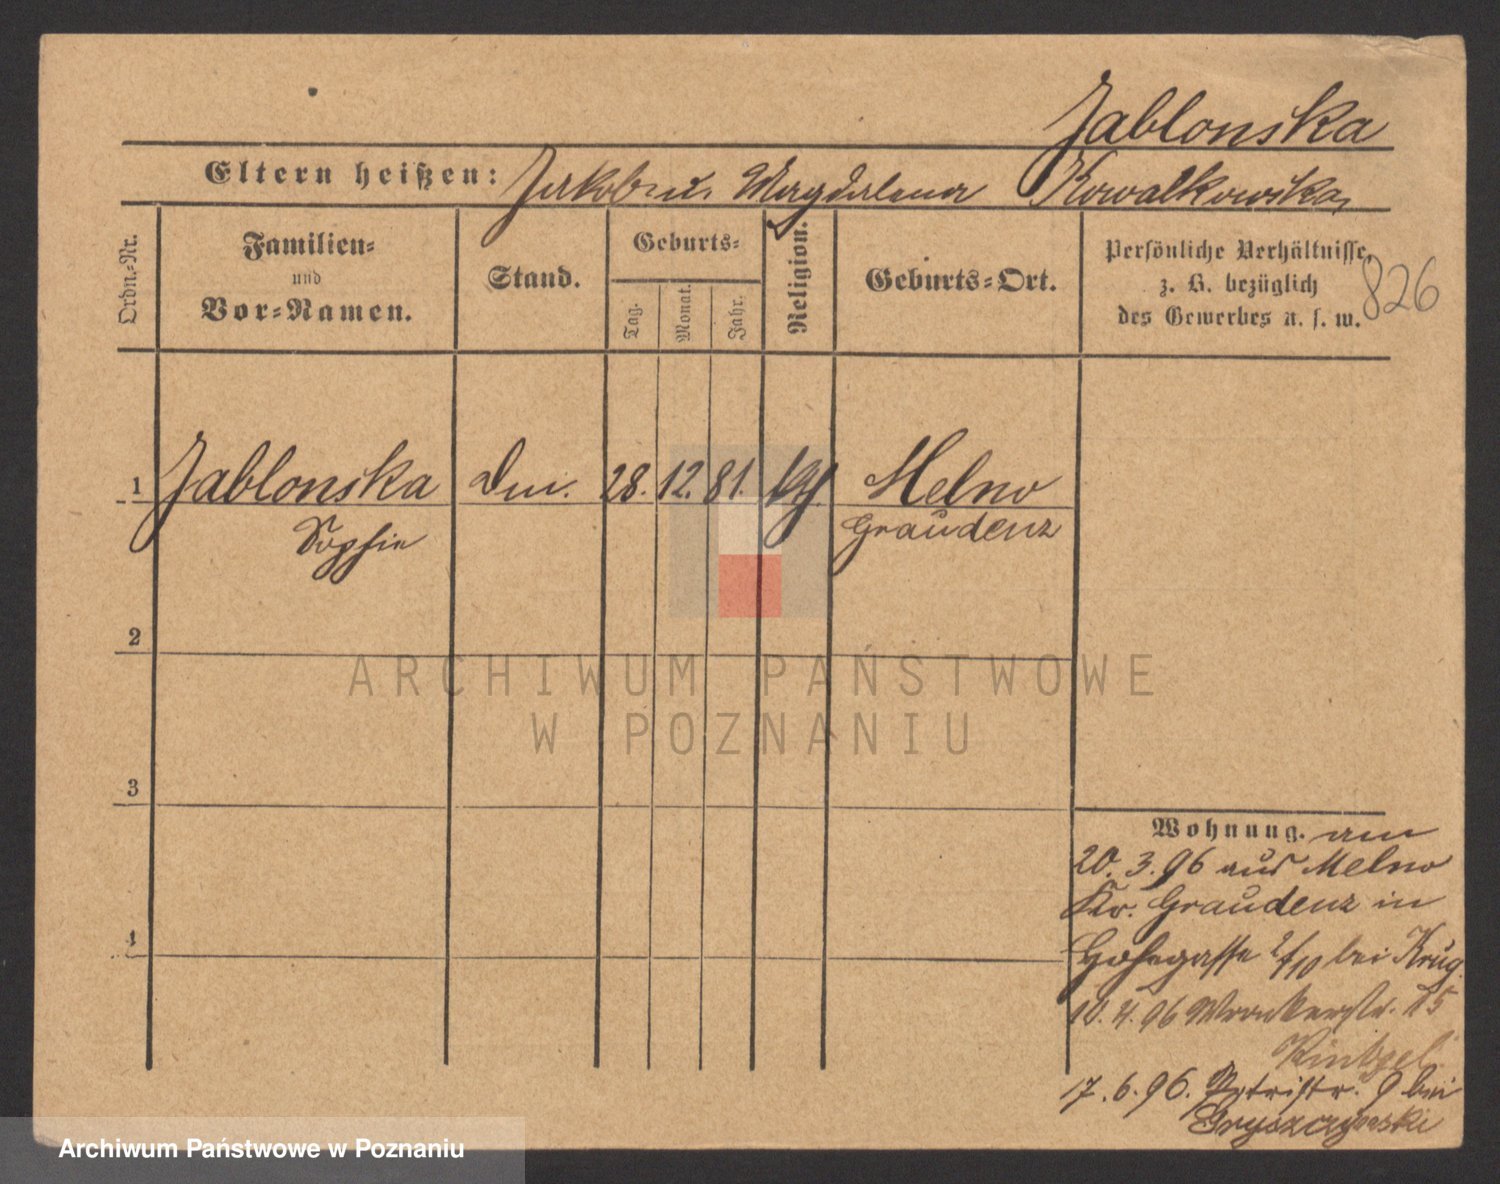 Jablonska
Eltern heißen: Jakobus Magdalena Kowalkowska
Ordn.-Nr.
Familien-
und
Vor-Namen.
Stand.
Geburts-
Tag.
Monat.
Jahr.
Religion.
Geburts-Ort.
Persönliche Verhältnisse,
z. B. bezüglich
des Gewerbes u. s. w.
826
1 Jablonska 28. 12. 81. Melno
Sophie Graudenz
2
3
4
Wohnung. am
20. 3. 96 aus Melno
Kr. Graudenz in
Hohegasse bei Krug
10. 4. 96 Wronkerstr. 15
17. 6. 96. Petristr. 9 bei
ARCHIWUM PAŃSTWOWE
W POZNANIU
Archiwum Państwowe w Poznaniu